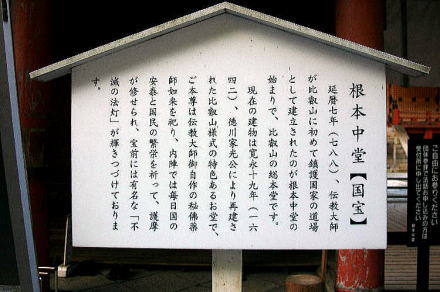 根本中堂【国宝】
延暦七年（七八八）、伝教大師
が比叡山に初めて鎮護国家の道場
として建立されたのが根本中堂の
始まりで、比叡山の総本堂です。
現在の建物は寛永十九年（一六
四二）、徳川家光公により再建さ
れた比叡山様式の特色あるお堂で、
ご本尊は伝教大師御自作の秘佛薬
師如来を祀り、内陣では毎日国の
安泰と国民の繁栄を祈って、護摩
が修せられ、宝前には有名な「不
滅の法灯」が輝きつづけておりま
す。
ご自由にお参りください
団体参拝で法話お申し込みの方は
受付所に申し出てください